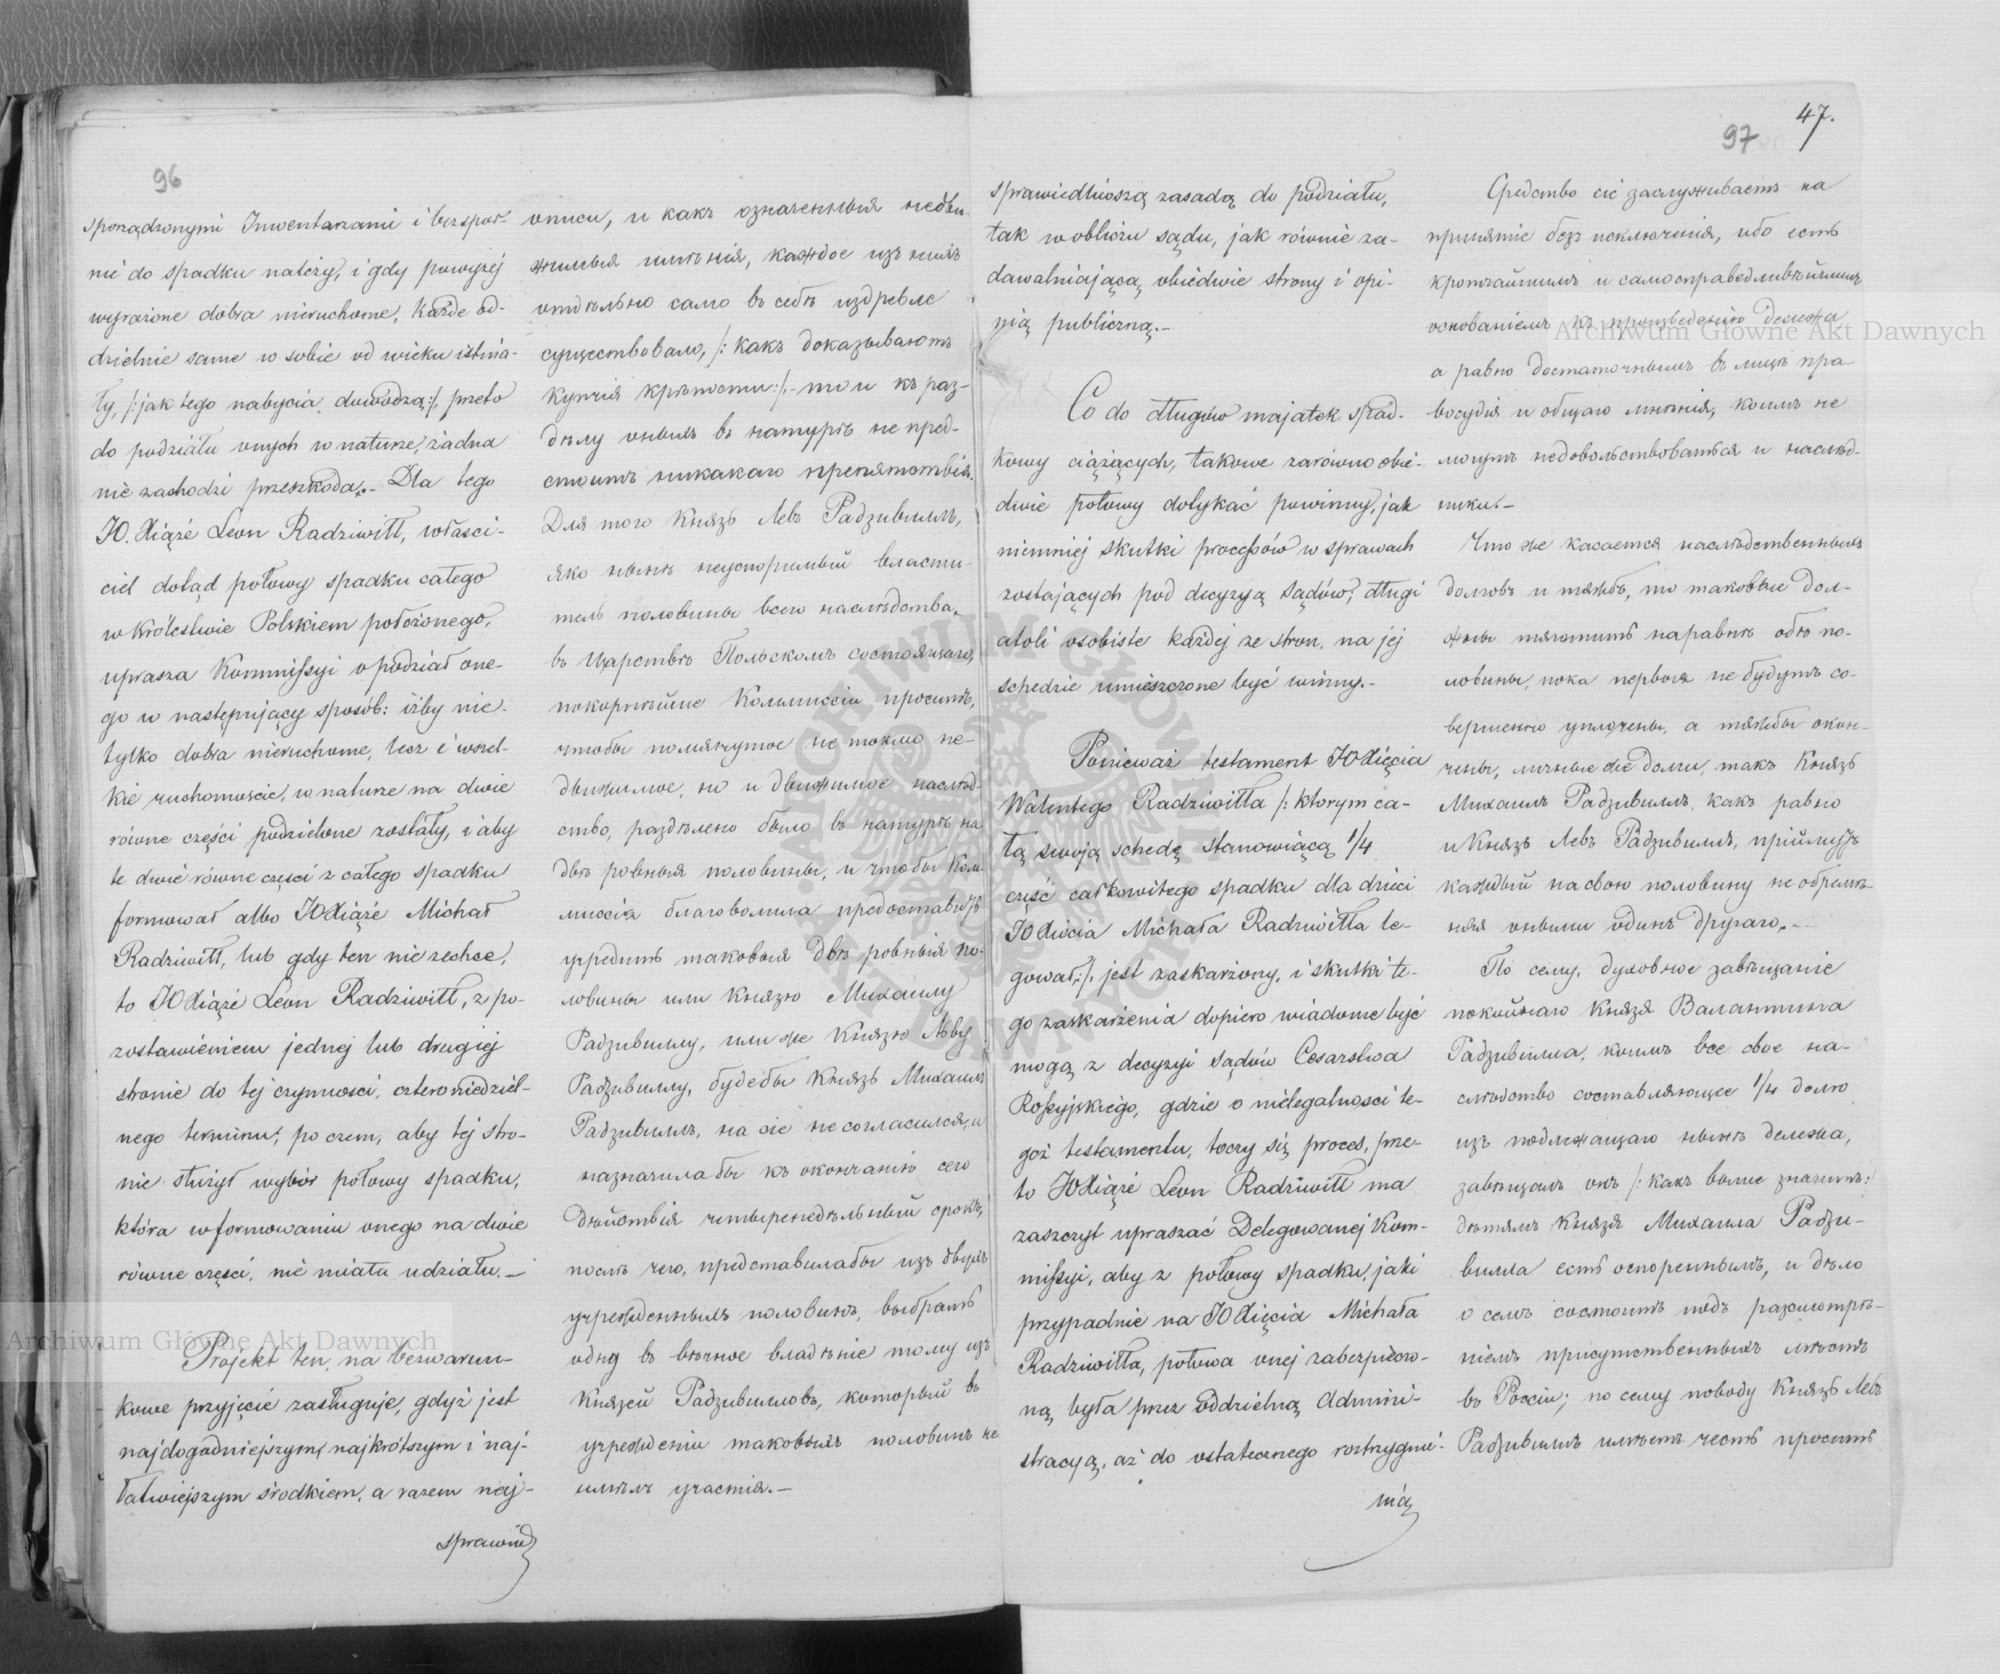 96
sporządzonymi Inwentarzami i bezspor-
nie do spadku należy, i gdy powyżej
wyrażone dobra nieruchome, każde od-
dzielnie same w sobie od wieku istnia-
ły, /:jak tego nabycia dowodzą:/, przeto
do podziału onych w naturze, żadna
nie zachodzi przeszkoda.- Dla tego
JO. Xiążę Leon Radziwiłł, właści-
ciel dotąd połowy spadku całego
w Królestwie Polskiem położonego,
uprasza Kommissyi o podział one-
go w następujący sposób: iżby nie-
tylko dobra nieruchome, lecz i wszel-
kie ruchomoście, w naturze na dwie
równe części podzielone zostały, i aby
te dwie równe części z całego spadku
formował albo JO Xiążę Michał
Radziwiłł, lub gdy ten nie zechce,
to JO Xiążę Leon Radziwiłł, z po-
zostawieniem jednej lub drugiej
stronie do tej czynności, czteroniedziel-
nego terminu; po czem, aby tej stro-
nie służył wybór połowy spadku,
która w formowaniu onego na dwie
równe części, nie miała udziału.—
Projekt ten, na bezwarun-
kowe przyjęcie zasługuje, gdyż jest
najdogodniejszym, najkrótszym i naj-
łatwiejszym środkiem, a razem naj-
sprawied
описи, и какъ означенныя недви-
жимыя имѣнія, каждое изъ нихъ
отдѣльно само въ себѣ издревле
существовало, /: какъ доказываютъ
купчія крѣпости:/.- то и къ раз-
дѣлу оныхъ въ натурѣ не пред-
стоитъ никакаго препятствія.
Для того Князь Левъ Радзивиллъ,
яко нынѣ неуспоримый власти-
тель половины всего наслѣдства,
въ Царствѣ Польскомъ состоящаго,
покорнѣйше Коммиссіи проситъ,
чтобы помянутое не токмо не-
движимое, но и движимое наслѣд-
ство, раздѣлено было въ натурѣ на
двѣ ровныя половины, и чтобы Ком-
миссія благоволила предоставить
учредить таковыя двѣ ровныя по-
ловины или Князю Михаилу
Радзивиллу, или же Князю Льву
Радзивиллу, будебы Князь Михаилъ
Радзивиллъ, на сіе не согласился, и
назначилабы къ окончанію сего
дѣйствія четыренедѣльный срокъ,
послѣ чего, представилабы изъ двухъ
учрежденныхъ половинъ, выбрать
одну въ вѣчное владѣніе тому изъ
Князей Радзивилловъ, который въ
учрежденіи таковыхъ половинъ не
имѣлъ участія.—
47.
97
sprawiedliwszą zasadą do podziału,
tak w obliczu sądu, jak równie za-
dawalniającą, obiedwie strony i opi-
nią publiczną.-
Co do długów majątek spad-
kowy ciążących, takowe zarówno obie-
dwie połowy dotykać powinny, jak
niemniej skutki processów w sprawach
zostających pod decyzyą Sądów; długi
atoli osobiste każdej ze stron, na jej
schedzie umieszczone być winny.-
Ponieważ testament JO Xięcia
Walentego Radziwiłła /: ktorym ca-
łą swoją schedę stanowiącą 1/4
część całkowitego spadku dla dzieci
JO Xięcia Michała Radziwiłła le-
gował:/. jest zaskarżony, i skutki te-
go zaskarżenia dopiero wiadome być
mogą z decyzyi Sądów Cesarstwa
Rossyjskiego, gdzie o nielegalności te-
goż testamentu, toczy się proces, prze-
to JO Xiążę Leon Radziwiłł ma
zaszczyt upraszać Delegowanej Kom-
missyi, aby z połowy spadku, jaki
przypadnie na JO Xięcia Michała
Radziwiłła, połowa onej zabezpieczo-
ną była przez oddzielną Admini-
stracyą, aż do ostatecznego rozstrzygnie-
nia
Средство сіе заслуживаетъ на
принятіе безъ исключенія, ибо есть
кротчайшимъ и самосправедливѣйшимъ
основаніемъ къ произведенію дележа
а равно достаточнымъ въ лицѣ пра-
восудія и общаго мнѣнія, коимъ не
могутъ недовольствоваться и наслѣд-
ники.—
Что же касается наслѣдственныхъ
долговъ и тяжбъ, то таковые дол-
жны тяготить наравнѣ обѣ по-
ловины, пока первыя не будутъ со-
вершенно уплочены, а тяжбы окон-
чены, личные же долги, такъ Князь
Михаилъ Радзивиллъ, какъ равно
и Князь Левъ Радзивиллъ, приймутъ
каждый на свою половину не обремѣ-
няя оными одинъ другаго.—
По сему, духовное завѣщаніе
покойнаго Князя Валантина
Радзивилла, коимъ все свое на-
слѣдство составляющее 1/4 долю
изъ подлежащаго нынѣ дележа,
завѣщалъ онъ /: какъ выше значитъ:/
дѣтямъ Князя Михаила Радзи-
вилла есть оспореннымъ, и дѣло
о семъ состоитъ подъ разсмотрѣ-
ніемъ присутственныхъ мѣстъ
въ Россіи; по сему поводу Князь Левъ
Радзивиллъ имѣетъ честь просить
Archiwum Główne Akt Dawnych
Archiwum Główne Akt Dawnych